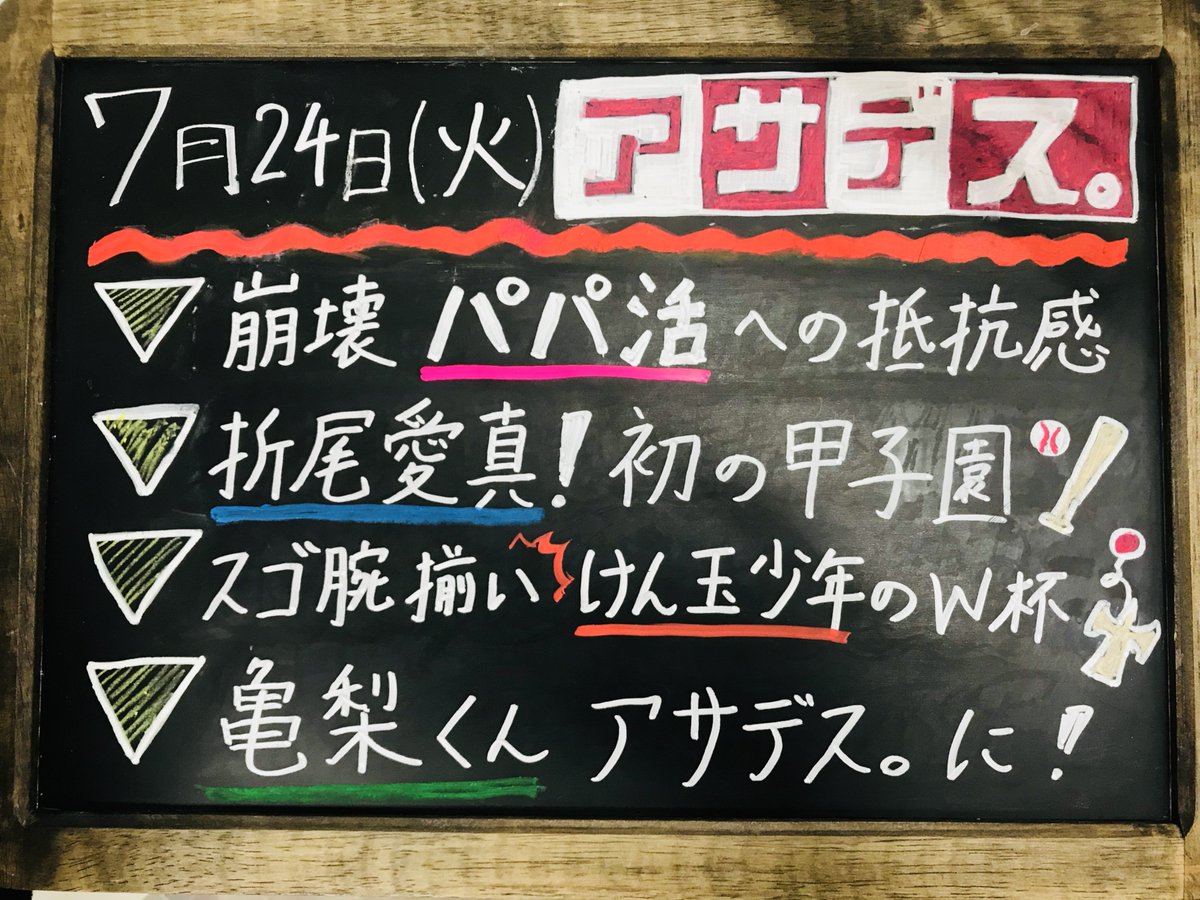 7月24日(火) アサデス。
▽ 崩壊 パパ活への抵抗感
▽ 折尾愛真!初の甲子園
▽ スゴ腕揃い けん玉少年のW杯
▽ 亀梨くん アサデス。に!